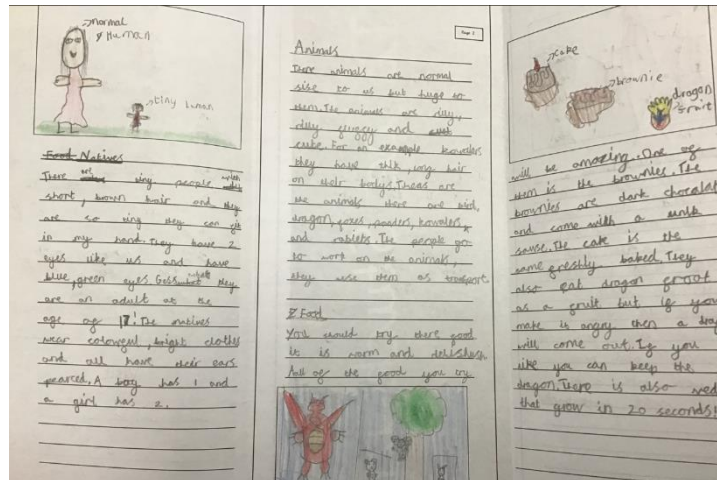 normal
Human
tiny human
Food Natives
There are tiny people with
short, brown hair and they
are so tiny they can fit
in my hand. They have 2
eyes like us and have
blue, green eyes. Gess what they
are an adult at the
age of 17! The natives
wear colowrful, bright clothes
and all have their ears
pearced. A boy has 1 and
a girl has 2.
Page 2
Animals
There animals are normal
size to us but huge to
them. The animals are rilly,
rilly and
cute. For an example kowalers
they have thik, long hair
on their bodys. Theas are
the animals there are bird,
dragon, foxes, panders, kowalers,
and rabbits. The people go
to work on the animals,
they use them as transport.
Food
You would try there food
it is worm and
All of the food you try
cake
brownie
dragon
fruit
will be amazing. One of
them is the brownies. The
brownies are dark chocolat
and come with a
sause. The cake is the
same freshly baked. They
also eat dragon froot
as a fruit but if you
make it angry then a drag
will come out. If you
like you can keep the
dragon. There is also
that grow in 20 seconds